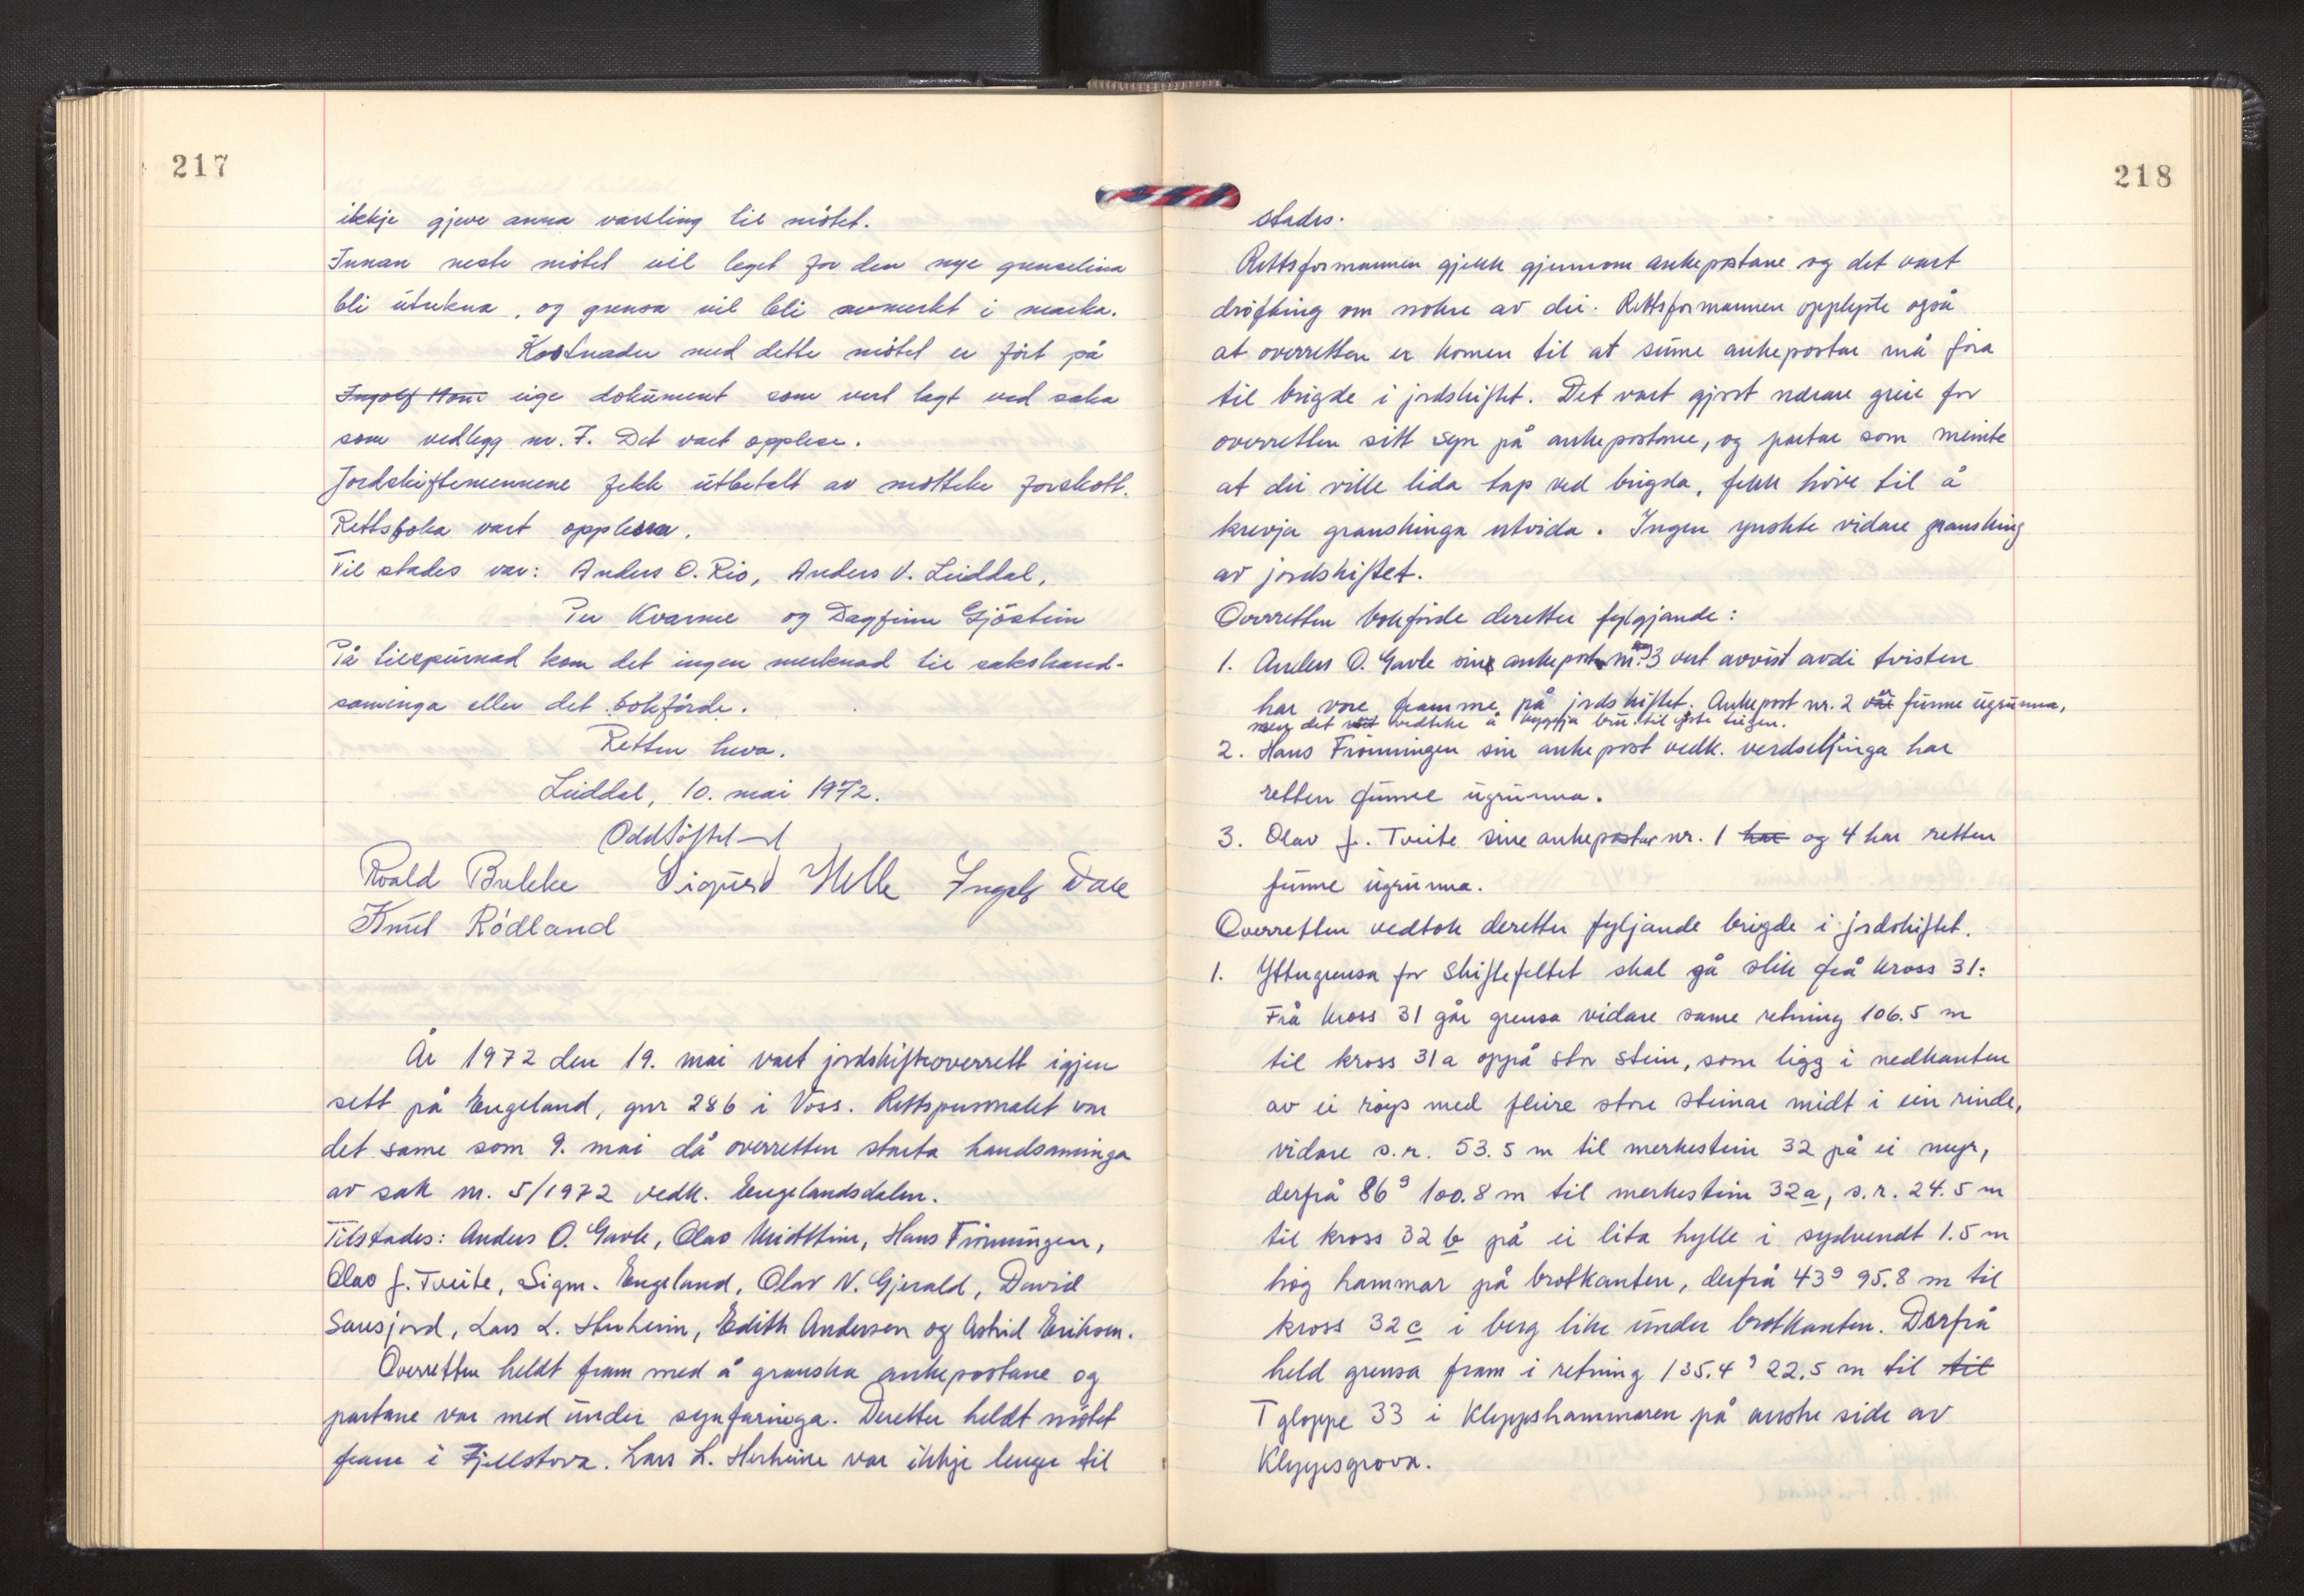 217
ikkje gjeve anna varsling til møtet.
Innan neste møtet vil leget for den nye grenselina
bli utrekna, og grensa vil bli avmerkt i marka.
Kostnader med dette møtet er ført på
eige dokument som vert lagt ved saka
som vedlegg nr. 7. Det vart opplese.
Jordskiftemennene fekk utbetalt av mottke forskott.
Rettsboka vart opplesen.
Til stades var: Anders O. Rio, Anders V. Liddal,
Per Kvarme og Dagfinn Gjøstein
På tilspurnad kom det ingen merknad til sakshand-
saminga eller det bokførde.
Retten heva.
Liddal, 10. mai 1972.
Odd
Roald Brekke Sigurd Helle Ingolf Dale
Knut Rødland
År 1972 den 19. mai vart jordskifteoverrett igjen
sett på Engeland, gnr 286 i Voss. Rettspersonalet var
det same som 9. mai då overretten starta handsaminga
av sak nr. 5/1972 vedk. Engelandsdalen.
Tilstades: Anders O. Gavle, Olav Midttun, Hans Frønningen,
Olav J. Tveite, Sigm. Engeland, Olav N. Gjerald, David
Saursjord, Lars L. Herheim, Edith Andersen og Astrid Eriksen.
Overretten heldt fram med å granska ankepostane og
partane var med under synfaringa. Deretter heldt møtet
fram i Fjellstova. Lars L. Herheim var ikkje lenger til
218
stades.
Rettsformannen gjekk gjennom ankepostane og det vart
drøfting om nokre av dei. Rettsformannen opplyste også
at overretten er komen til at sume ankepostar må føra
til brigde i jordskiftet. Det vart gjort nærare greie for
overretten sitt syn på ankepostane, og partar som meinte
at dei ville lida tap ved brigda, fekk høve til å
krevja granskinga utvida. Ingen ynskte vidare gransking
av jordskiftet.
Overretten bokførde deretter fylgjande:
1. Anders O. Gavle sin ankepost nr. 3 vert avvist avdi tvisten
har vore framme på jordskiftet. Ankepost nr. 2 er funne ugrunna,
men det vedteke å byggja bru til
2. Hans Frønningen sin ankepost vedk. verdsetjinga har
retten funne ugrunna.
3. Olav J. Tveite sine ankepostar nr. 1 har og 4 har retten
funne ugrunna.
Overretten vedtok deretter fyljande brigde i jordskiftet.
1. Yttergrensa for skiftefeltet skal gå slik frå kross 31:
Frå kross 31 går grensa vidare same retning 106.5 m
til kross 31a oppå stor stein, som ligg i nedkanten
av ei røys med fleire store steinar midt i ein rinde,
vidare s.r. 53.5 m til merkestein 32 på ei myr,
derfrå 86g 100.8 m til merkestein 32a, s.r. 24.5 m
til kross 32 b på ei lita hylle i sydvendt 1.5 m
høg hammar på brotkanten, derfrå 43g 95.8 m til
kross 32c i berg like under brotkanten. Derfrå
held grensa fram i retning 135.4g 22.5 m til til
T gloppe 33 i Kleppshammaren på austre side av
Kleppesgrova.